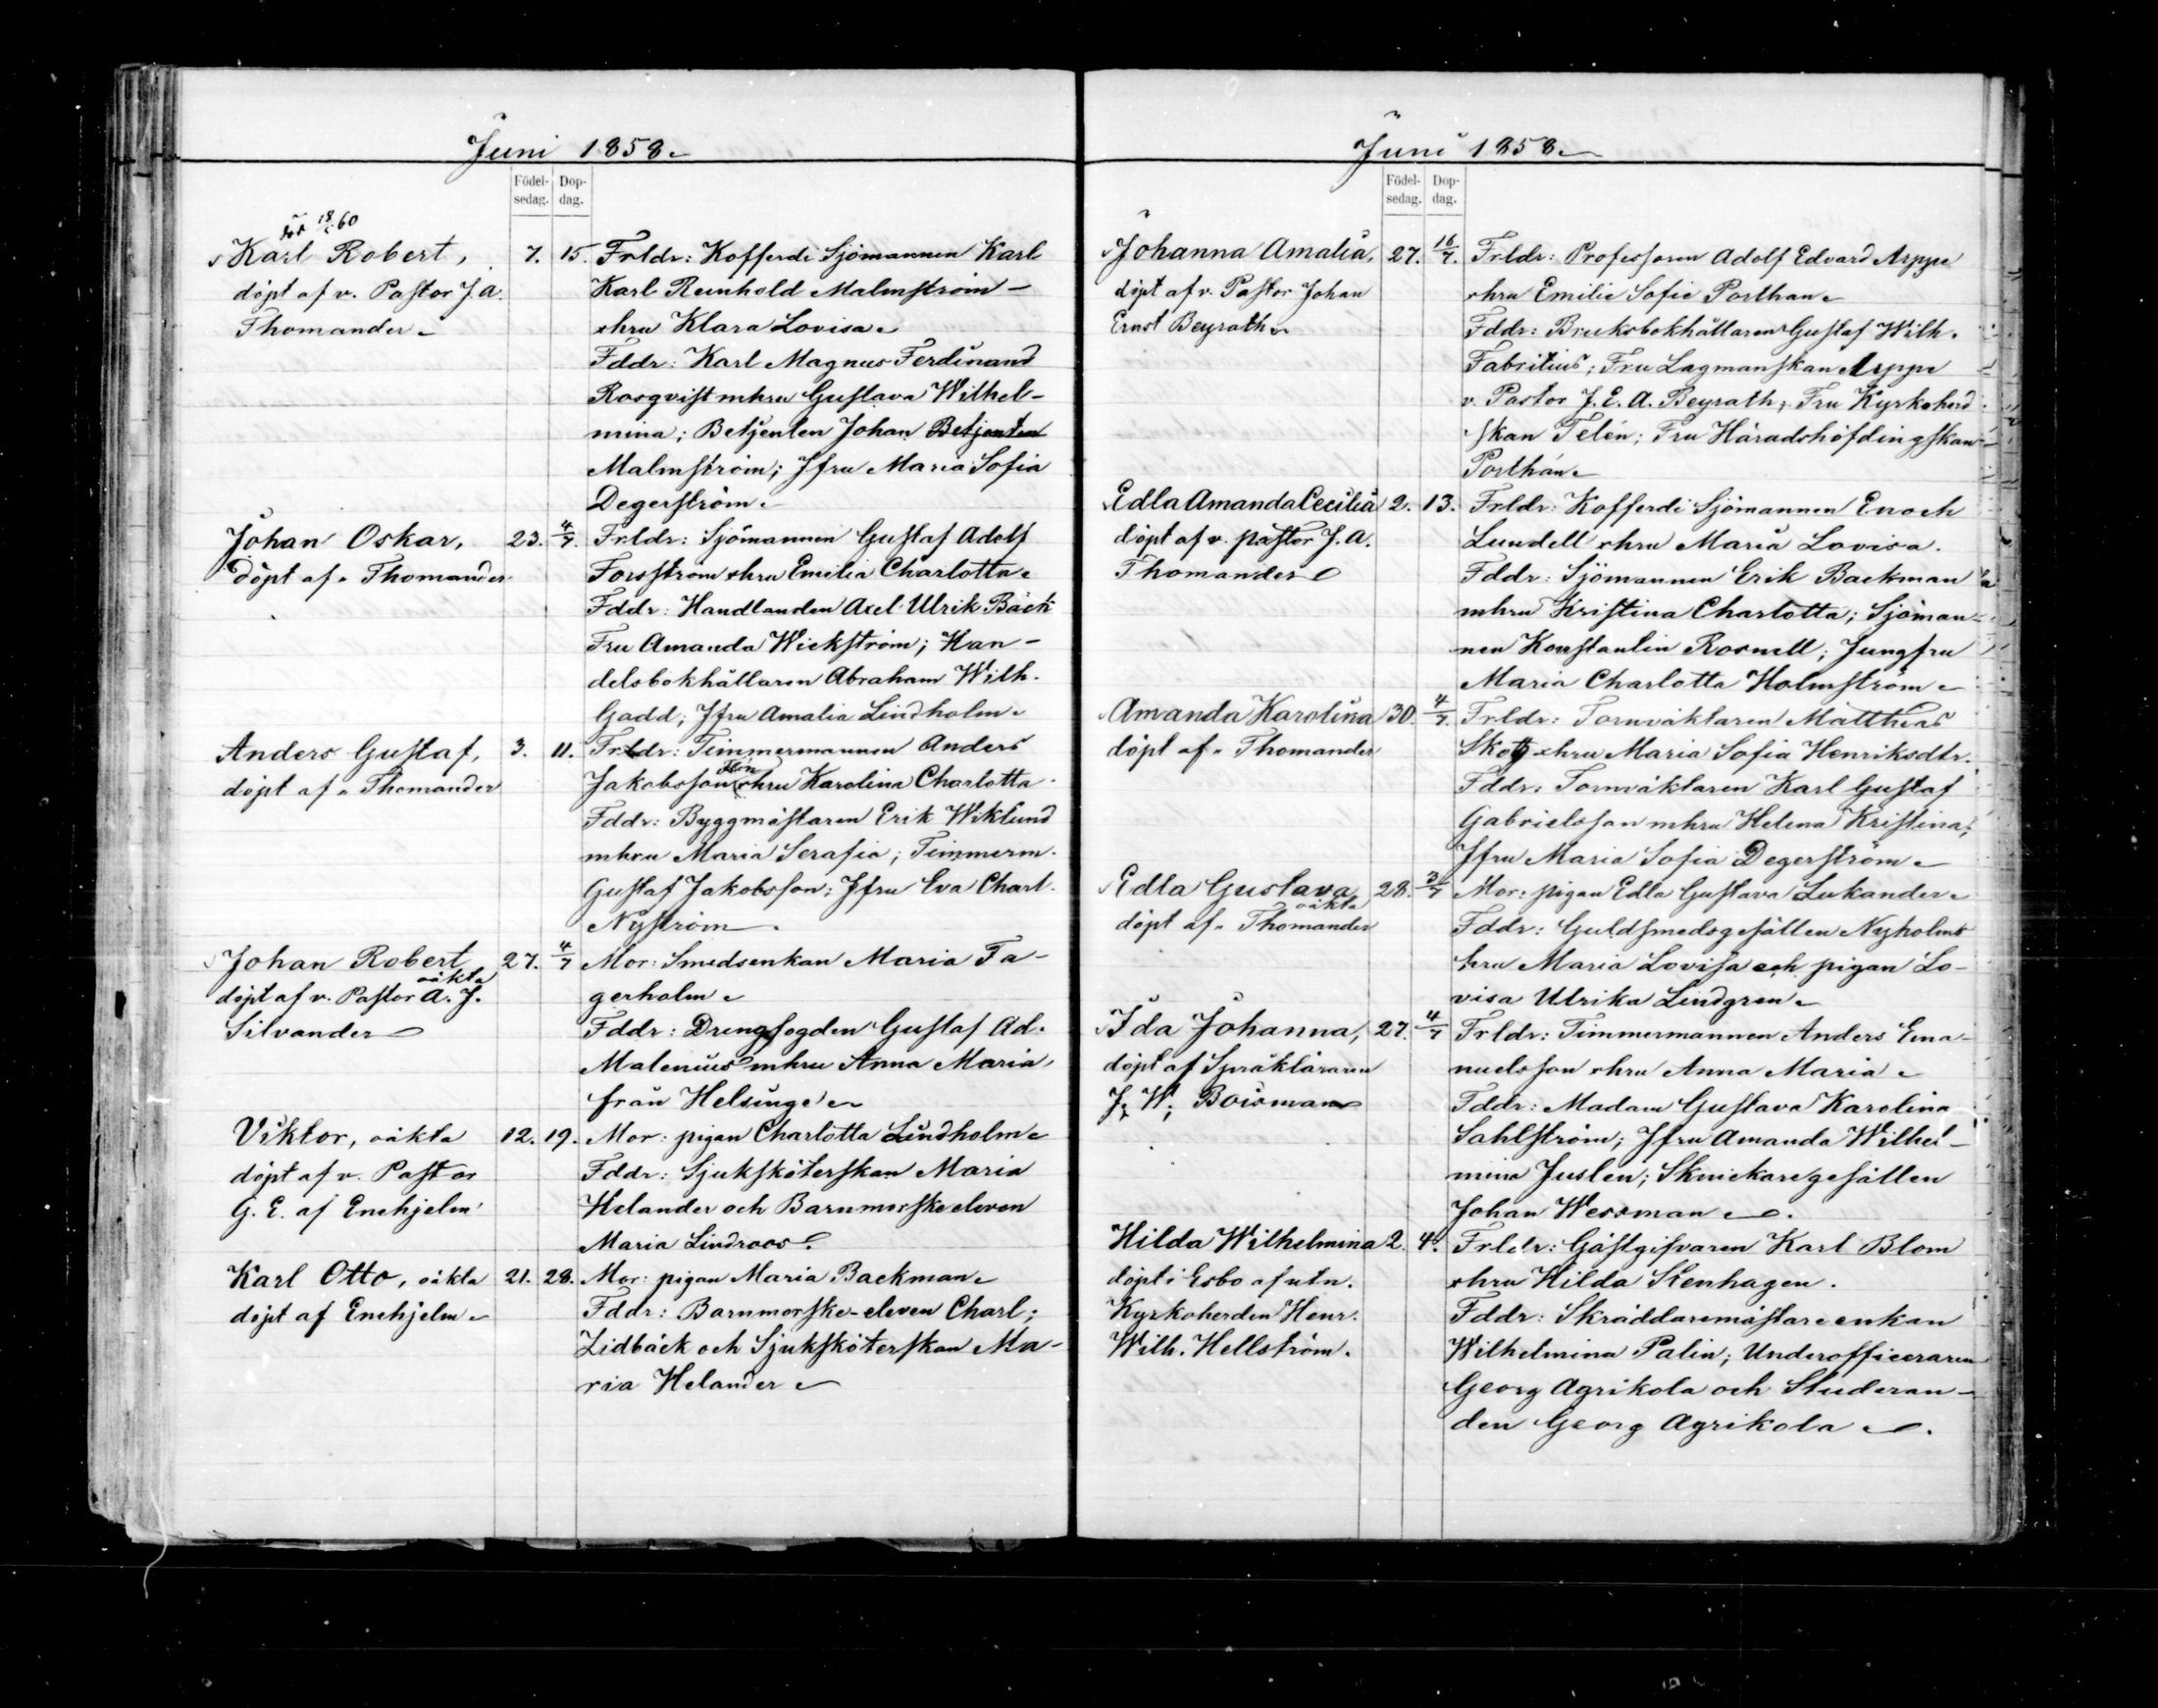 Juni 1858.
Födel- Dop-
sedag. dag.
död 18/5 60
Karl Robert, 7. 15. Frldr: Kofferdi Sjömannen Karl
döpt af v. Pastor J. A. Karl Reinhold Malmström
Thomander. o hru Klara Lovisa.
Fddr: Karl Magnus Ferdinand
Rosqvist m hru Gustava Wilhel-
mina; Betjenten Johan Betjenten
Malmström; Jfru Maria Sofia
Degerström.
Johan Oskar, 23. 4/7. Frldr: Sjömannen Gustaf Adolf
döpt af " Thomander Forsström o hru Emilia Charlotta.
Fddr: Handlanden Axel Ulrik Bäck
Fru Amanda Wickström; Han-
delsbokhållaren Abraham Wilh.
Gadd; Jfru Amalia Lindholm.
Anders Gustaf, 3. 11. Frldr: Timmermannen Anders
döpt af " Thomander Jakobsson o hru Karolina Charlotta.
Fddr: Byggmästaren Erik Wiklund
m hru Maria Serafia; Timmerm.
Gustaf Jakobsson; Jfru Eva Charl.
Nyström.
Johan Robert 27. 4/7 Mor: Smedsenkan Maria Fa-
oäkta
döpt af v. Pastor A. J. gerholm.
Silvander Fddr: Drengfogden Gustaf Ad.
Malenius m hru Anna Maria,
från Helsinge.
Viktor, oäkta 12. 19. Mor: pigan Charlotta Lindholm.
döpt af v. Pastor Fddr: Sjuksköterskan Maria
G. E. af Enehjelm Helander och Barnmorskeeleven
Maria Lindroos.
Karl Otto, oäkta 21. 28. Mor: pigan Maria Backman.
döpt af Enehjelm. Fddr: Barnmorske-eleven Charl:
Lidbäck och Sjuksköterskan Ma-
ria Helander
Juni 1858.
Födel- Dop-
sedag. dag.
Johanna Amalia, 27. 16/7. Frldr: Professoren Adolf Edvard Arppe
döpt af v. Pastor Johan o hru Emilie Sofie Porthan.
Ernst Beyrath. Fddr: Bruksbokhållaren Gustaf Wilh.
Fabritius; Fru Lagmanskan Arppe
v. Pastor J. E. A. Beyrath; Fru Kyrkoherd
skan Telén; Fru Häradshöfdingskan
Porthán.
Edla Amanda Cecilia 2. 13. Frldr: Kofferdi Sjömannen Enoch
döpt af v. pastor J. A. Lundell o hru Maria Lovisa.
Thomander Fddr: Sjömannen Erik Backman
m hru Kristina Charlotta; Sjöman-
nen Konstantin Rosnell; Jungfru
Maria Charlotta Holmström.
Amanda Karolina 30. 4/7. Frldr: Tornväktaren Matthias
döpt af " Thomander Skott o hru Maria Sofia Henriksdtr.
Fddr: Tornväktaren Karl Gustaf
Gabrielsson m hru Helena Kristina;
Jfru Maria Sofia Degerström.
Edla Gustava 28. 3/7 Mor: pigan Edla Gustava Lukander.
oäkta
döpt af " Thomander Fddr: Guldsmedsgesällen Nyholms
hru Maria Lovisa och pigan Lo-
visa Ulrika Lindgren.
Ida Johanna, 27. 4/7 Frldr: Timmermannen Anders Ema-
döpt af Språkläraren nuelsson o hru Anna Maria.
J. W. Boisman Fddr: Madam Gustava Karolina
Sahlström; Jfru Amanda Wilhel-
mina Juslen; Snickaregesällen
Johan Wessman.
Hilda Wilhelmina 2. 4. Frldr: Gästgifvaren Karl Blom
döpt i Esbo af utn. o hru Hilda Stenhagen.
Kyrkoherden Henr. Fddr: Skräddaremästareenkan
Wilh. Hellström. Wilhelmina Palin; Underofficeraren
Georg Agrikola och Studeran-
den Georg Agrikola.